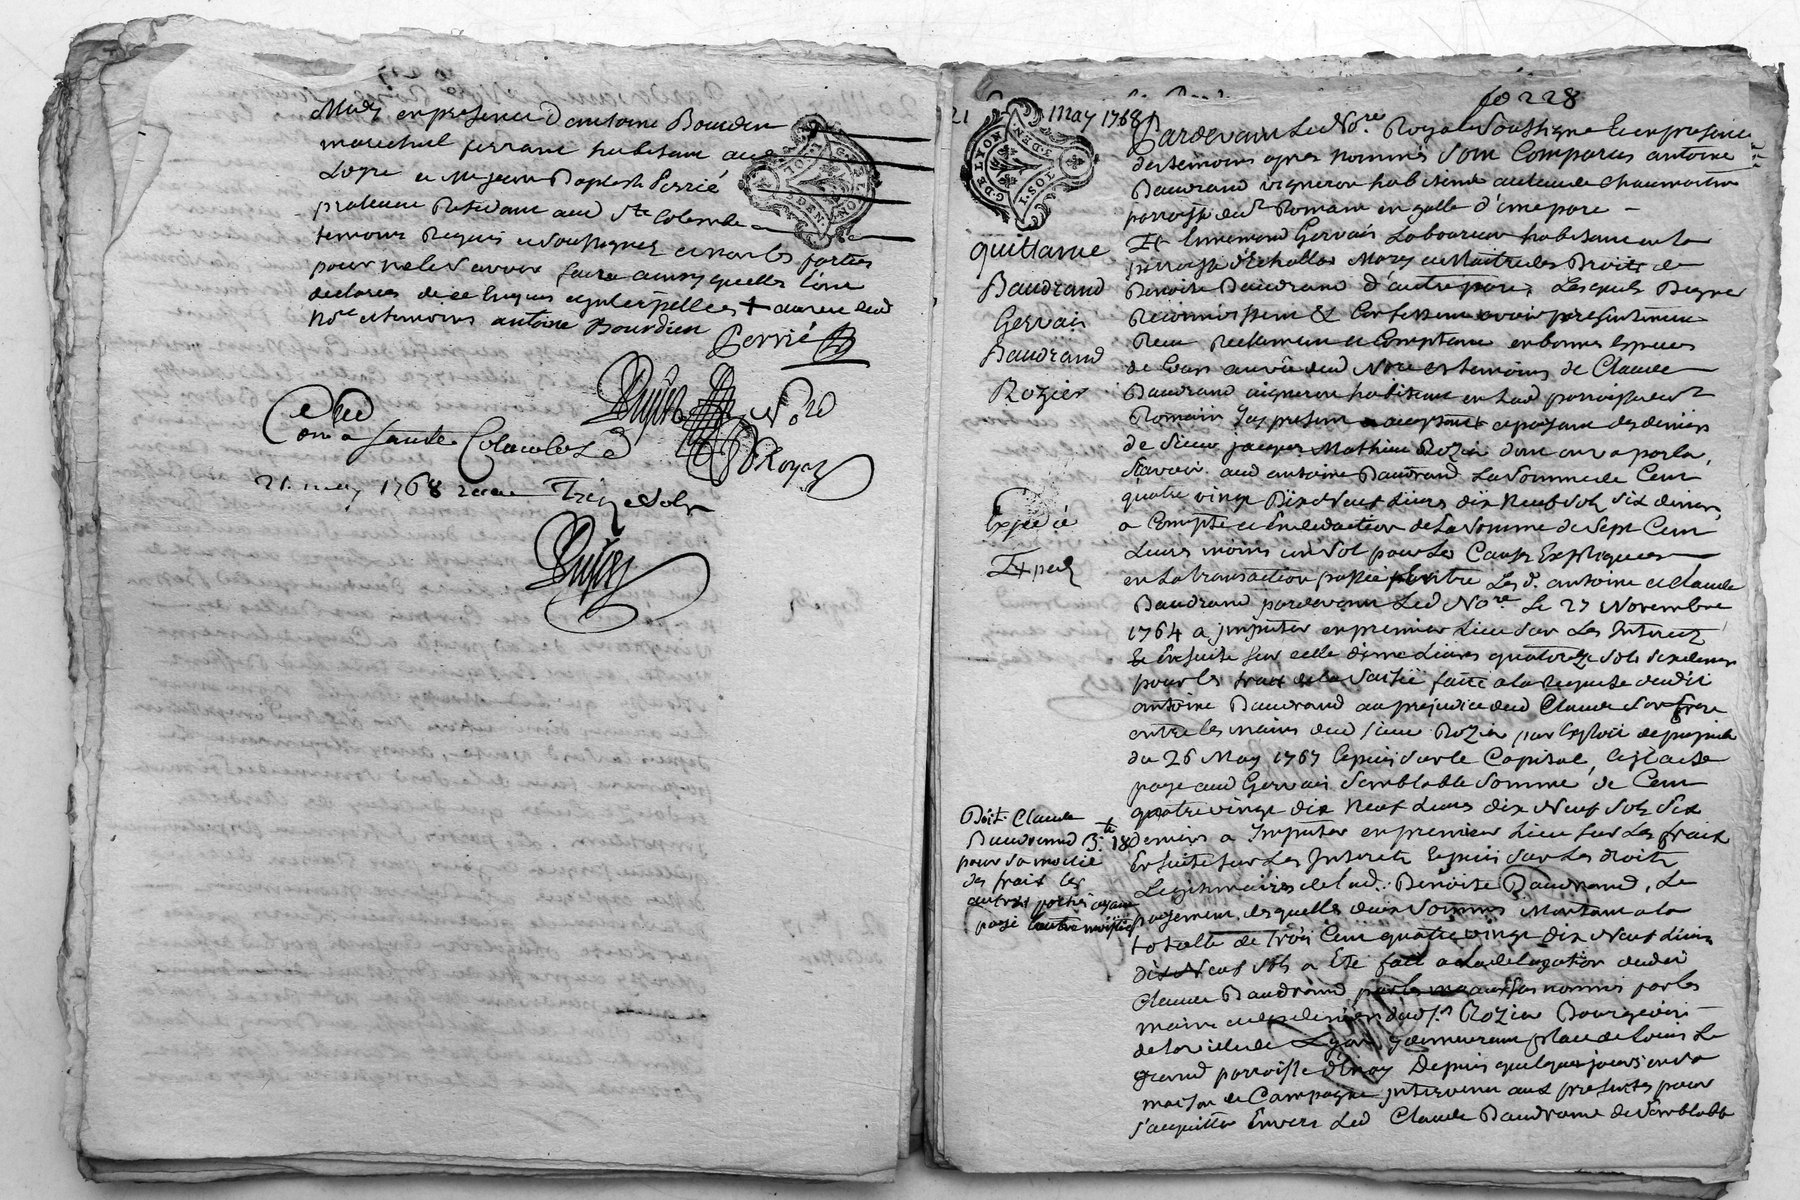 May en presence d'antoine Bourdin
marechal ferrant habitant aud
Loyre et Me jean Baptiste Perrié
praticien Residant aud Ste Colombe
temoins Requis et soussignés et non les parties
pour ne le savoir faire ainsy quelles l'ont
declarés de ce Enquis et interpellées + avec led
Nore et temoins antoine Bourdien
Perrié
Dussu
Royer
Con a sainte Colombe Le
21. may 1768 receu Treize sols
Dussu
fo 228
21 May 1768
G. DE LYON
1. SOL
quittance
Baudrand
Gervais
Baudrand
Rozier
Expedié
Doit Claude
Baudrand 3.tt 18
pour sa moitié
des frais les
autres parties ayant
payé l'autre moitiés
Pardevant Le Nore Royal Soussigné Et en presence
des temoins apres nommés sont Comparus antoine
Baudrand vigneron habitant au lieu de Chaumartin
parroisse de St Romain en galle d'une part
Et Ennemond Gervais Laboureur habitant en la
parroisse d'Echallas Mary et Maitre des Droits de
Benoite Baudrand d'autre part, Lesquels De gré
Reconnoissent Et Confessent avoir presentement
Receu Reellement et Comptant en bonnes Especes
de Cours au vû dud Nore et temoins de Claude
Baudrand vigneron habitant en lad parroisse de St
Romain Icy present et acceptant et payant des deniers
de sieur jacques Mathieu Rozier dont on va parler,
Savoir aud antoine Baudrand La somme de Cent
quatre vingt Dix Neuf Livres dix Neuf sols six deniers
a Compte et En deduction de La somme de sept Cent
Livres moins un sol pour Les Causes Expliquées
en La transaction passée Entre Les d. antoine et Claude
Baudrand pardevant Led Nore Le 27 Novembre
1764 a jmputer en premier Lieu sur Les Interets
Et Ensuite sur celle de Livres quatorze sols six deniers
pour les frais de la saisie faite a la Requete dudit
antoine Baudrand au prejudice dud Claude son frere
entre les mains dud sieur Rozier par Exploit
du 26 May 1767 Et puis sur le Capital, Et
paye aud Gervais semblable somme de Cent
quatre vingt dix Neuf Livres dix Neuf sols six
deniers a Imputer en premier Lieu sur Les frais
Ensuite sur Les Interets Et puis sur Les droits
Legitimaires de lad. Benoite Baudrand, Le
payement desquelles deux sommes Montant a la
totalle de trois Cent quatre vingt dix Neuf Livres
dix Neuf sols a Eté fait a La delegation dudit
Claude Baudrand nommés par les
mains et des deniers dud Sr Rozier Bourgeois
de la ville de Lyon y demeurant place de Louis Le
grand parroisse d'Enay Depuis quelques jours en sa
maison de Campagne intervenu aux presentes pour
s'acquitter Envers Led Claude Baudrand de semblable